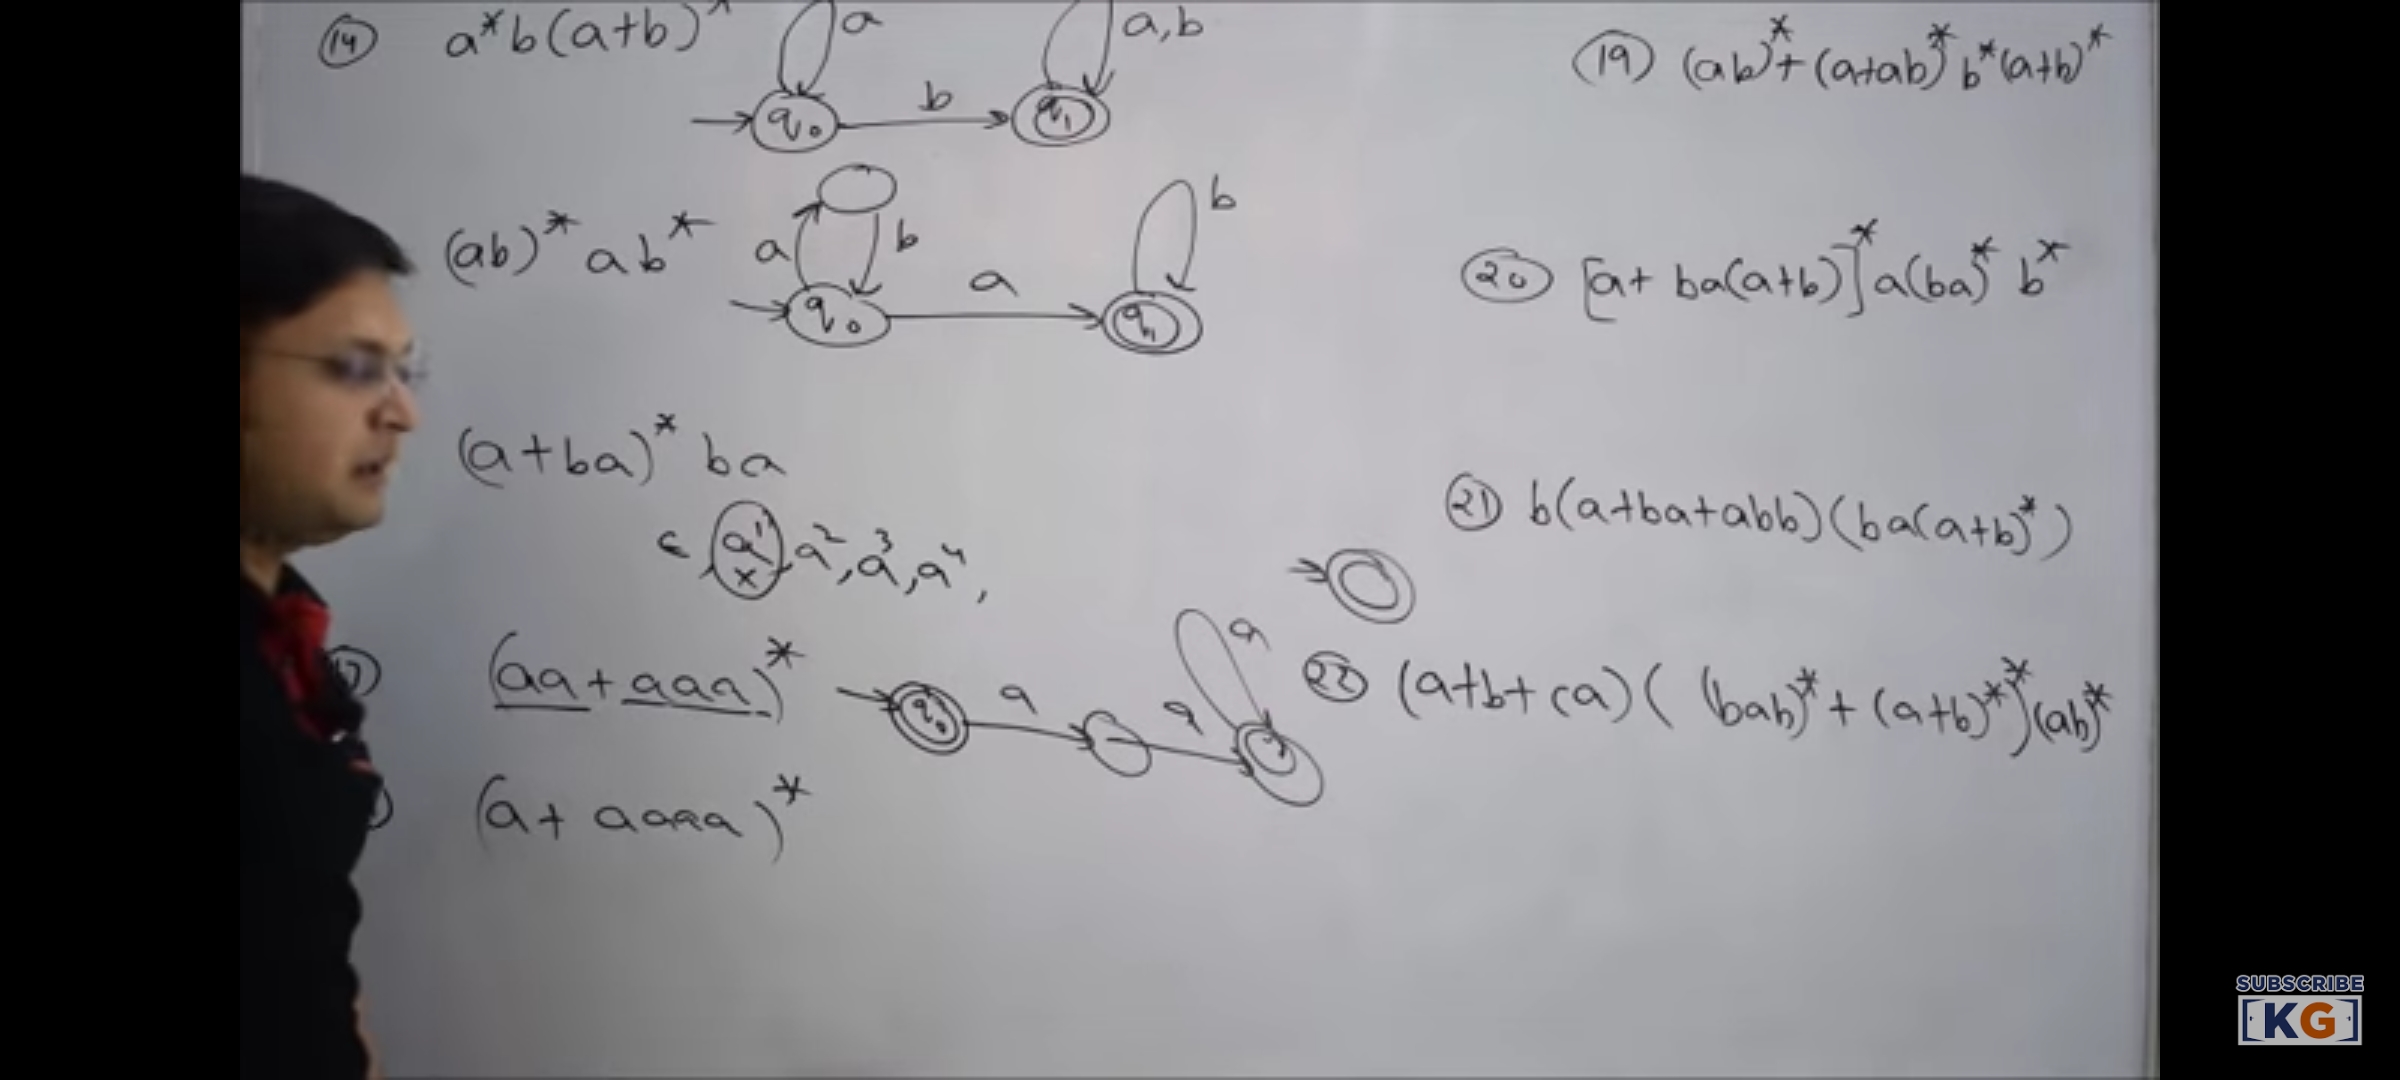 (14) a*b(a+b)* a a,b
q0 b q1
(ab)* ab* a b b
q0 a q1
(a+ba)* ba
ε, a¹, a², a³, a⁴,
x
(aa+aaa)* q0 a a a
(a+aaaa)*
(19) (ab)*+(a+ab)* b*(a+b)*
(20) [a+ ba(a+b)]* a(ba)* b*
(21) b(a+ba+abb)(ba(a+b)*)
(22) (a+b+ca)( (bab)*+(a+b)*)*(ab)*
SUBSCRIBE
KG